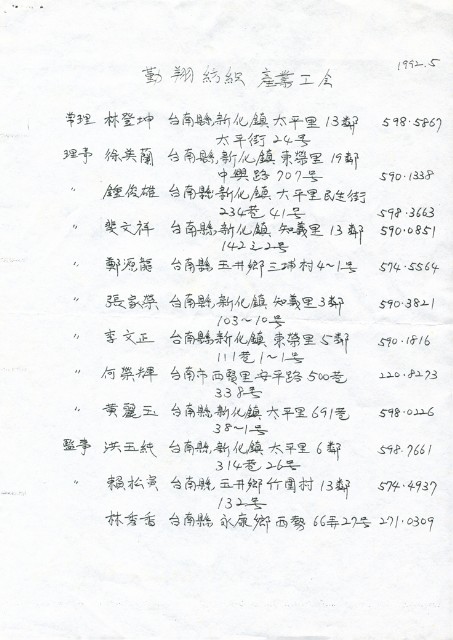 1992.5
勤翔紡織 產業工会
常理 林登坤 台南縣新化鎮太平里13鄰 598.5867
太平街24号
理事 徐美蘭 台南縣新化鎮東榮里19鄰
中興路707号 590.1338
〃 鍾俊雄 台南縣新化鎮太平里民生街
234巷41号 598.3663
〃 裴文祥 台南縣新化鎮知義里13鄰 590.0851
142之2号
〃 鄭源龍 台南縣玉井鄉三埔村4~1号 574.5564
〃 張家榮 台南縣新化鎮知義里3鄰 590.3821
103~10号
〃 李文正 台南縣新化鎮東榮里5鄰 590.1816
111巷1~1号
〃 何榮輝 台南市西賢里安平路500巷 220.8273
338号
〃 黃麗玉 台南縣新化鎮太平里691巷 598.0226
38~1号
監事 洪玉純 台南縣新化鎮太平里6鄰 598.7661
314巷26号
〃 賴松 台南縣玉井鄉竹圍村13鄰 574.4937
132号
林秀香 台南縣永康鄉西勢66弄27号 271.0309